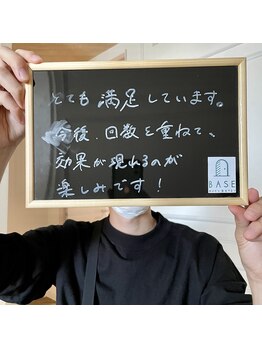 とても満足しています。
今後、回数を重ねて、
効果が現れるのが
楽しみです！
BASE